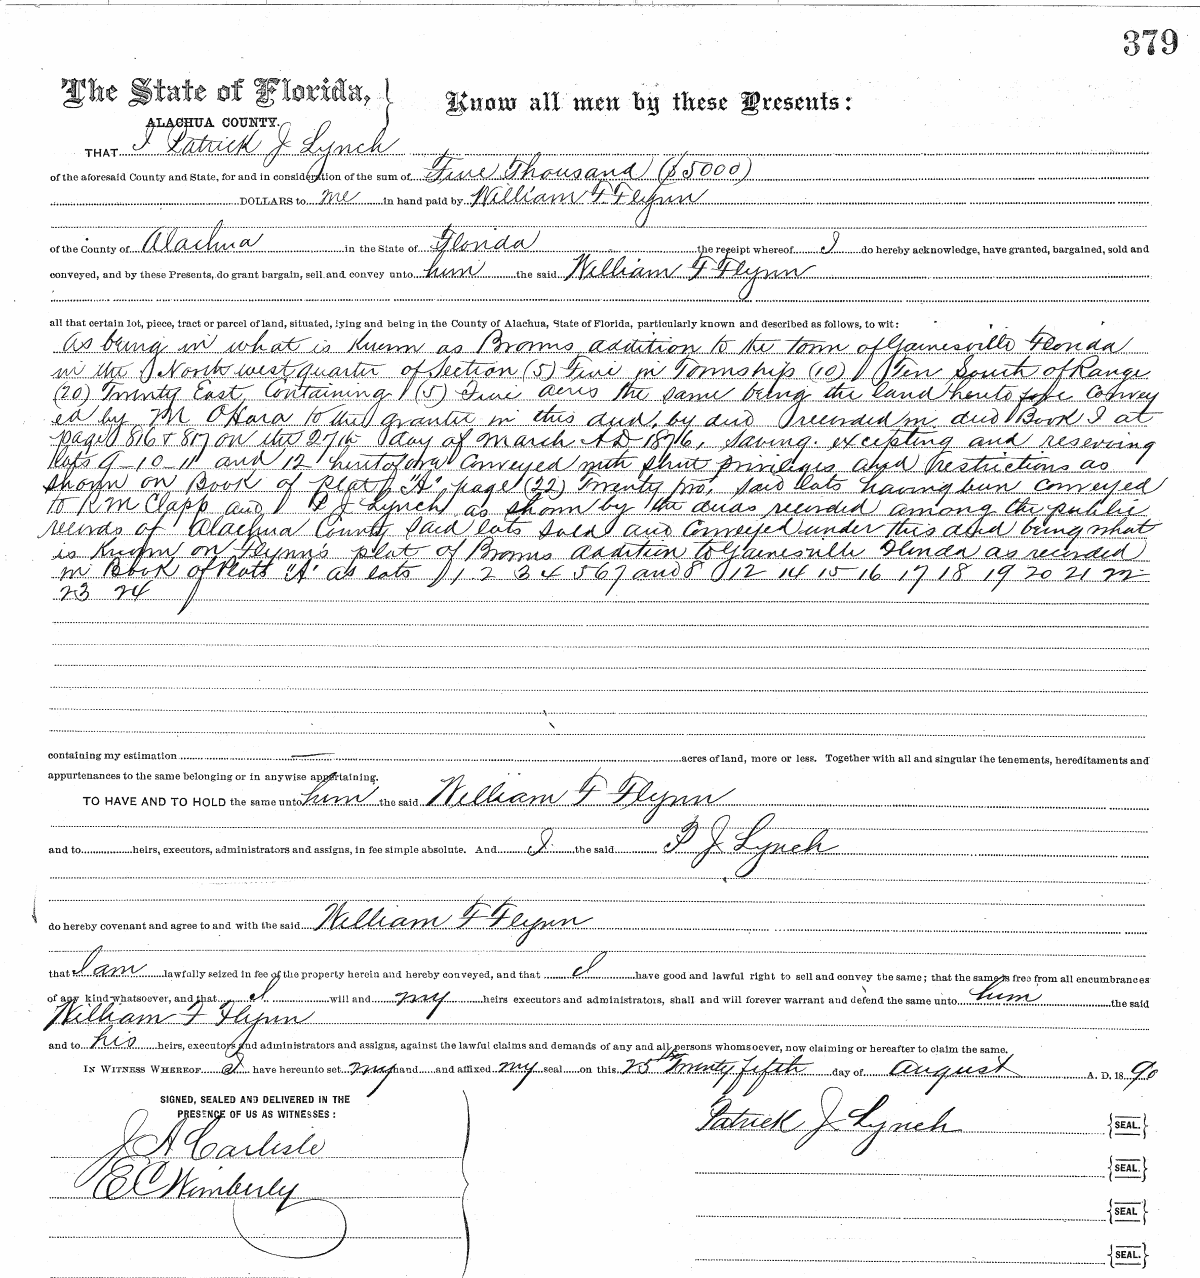 379
The State of Florida, } Know all men by these Presents:
ALACHUA COUNTY.
THAT I Patrick J Lynch
of the aforesaid County and State, for and in consideration of the sum of Five Thousand ($5000)
DOLLARS to me in hand paid by William F Flynn
of the County of Alachua in the State of Florida the receipt whereof I do hereby acknowledge, have granted, bargained, sold and
conveyed, and by these Presents, do grant bargain, sell and convey unto him the said William F Flynn
all that certain lot, piece, tract or parcel of land, situated, lying and being in the County of Alachua, State of Florida, particularly known and described as follows, to wit:
As being in what is Known as Browns addition to the town of Gainesville Florida
in the North west quarter of Section (5) Five in Township (10) Ten South of Range
(20) Twenty East, Containing (5) Five acres the same being the land heretofore Convey
ed by M OHara to the grantor in this deed, by deed recorded in deed Book I at
page 816 & 817 on the 27th day of March AD 1876, Saving excepting and reserving
lots 9-10-11 and 12 heretofore Conveyed with privileges and restrictions as
shown on Book of Plats "A" page (22) Twenty two, said lots having been conveyed
to R M Clapp and P J Lynch as shown by the deeds recorded among the public
records of Alachua County said lots sold and conveyed under this deed being what
is Known on Flynn's plat of Browns addition to Gainesville Florida as recorded
in Book of Plats "A" as lots 1 2 3 4 5 6 7 and 8 12 14 15 16 17 18 19 20 21 22
23 24
containing my estimation — acres of land, more or less. Together with all and singular the tenements, hereditaments and
appurtenances to the same belonging or in anywise appertaining.
TO HAVE AND TO HOLD the same unto him the said William F Flynn
and to heirs, executors, administrators and assigns, in fee simple absolute. And I the said P J Lynch
do hereby covenant and agree to and with the said William F Flynn
that I am lawfully seized in fee of the property herein and hereby conveyed, and that I have good and lawful right to sell and convey the same; that the same is free from all encumbrances
of any kind whatsoever, and that I will and my heirs executors and administrators, shall and will forever warrant and defend the same unto him the said
William F Flynn
and to his heirs, executors and administrators and assigns, against the lawful claims and demands of any and all persons whomsoever, now claiming or hereafter to claim the same.
IN WITNESS WHEREOF I have hereunto set my hand and affixed my seal on this 25th Twenty fifth day of August A. D. 1890
SIGNED, SEALED AND DELIVERED IN THE
PRESENCE OF US AS WITNESSES:
Patrick J Lynch {SEAL.}
J A Carlisle
{SEAL.}
E C Wimberly
{SEAL}
{SEAL.}